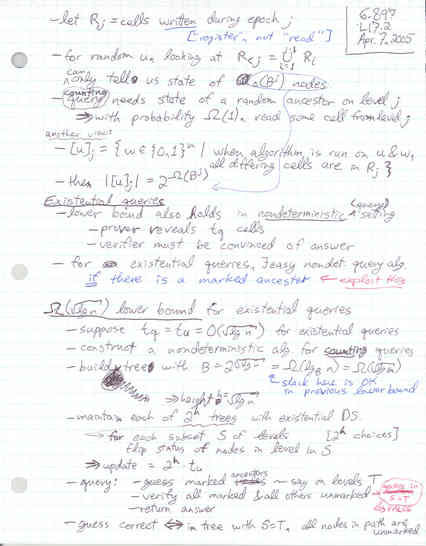 6.897
L17.2
Apr. 7, 2005
- let Rj = cells written during epoch j
[register, not "read"]
- for random u, looking at R<j = ∪ Ri
can only tell us state of (Bj) nodes
- counting query needs state of a random ancestor on level j
⇒ with probability Ω(1), read some cell from level j
another view:
- [u]j = { w ∈ {0,1}n | when algorithm is run on u & w, all differing cells are in Rj }
- then |[u]j| = 2^-Ω(Bj)
Existential queries
- lower bound also holds in nondeterministic (query) setting
- prover reveals tq cells
- verifier must be convinced of answer
- for existential queries, ∃easy nondet. query alg.
if there is a marked ancestor ← exploit this
Ω(√lg n) lower bound for existential queries
- suppose tq = tu = O(√lg n) for existential queries
- construct a nondeterministic alg. for counting queries
- build tree with B = 2^√lg n = Ω(lgB n) = Ω(√lg n)
slack here is OK
in previous lower bound
⇒ height h = √lg n
- maintain each of 2^h trees with existential DS.
→ for each subset S of levels [2^h choices]
flip status of nodes in level in S
⇒ update = 2^h · tu
- query: - guess marked ancestors ~ say on levels T
- verify all marked & all others unmarked
S=T
- return answer
- guess correct ⇔ in tree with S=T, all nodes in path are unmarked